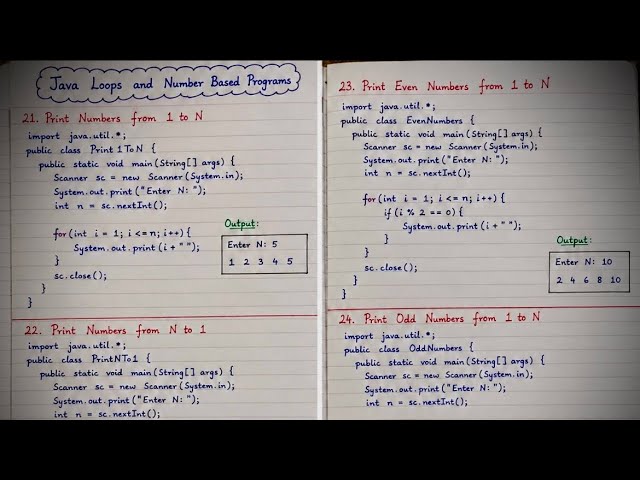 Java Loops and Number Based Programs
21. Print Numbers from 1 to N
import java.util.*;
public class Print1ToN {
public static void main(String[] args) {
Scanner sc = new Scanner(System.in);
System.out.print("Enter N: ");
int n = sc.nextInt();
for(int i = 1; i <= n; i++) {
System.out.print(i + " ");
}
sc.close();
}
}
Output:
Enter N: 5
1 2 3 4 5
22. Print Numbers from N to 1
import java.util.*;
public class PrintNTo1 {
public static void main(String[] args) {
Scanner sc = new Scanner(System.in);
System.out.print("Enter N: ");
int n = sc.nextInt();
23. Print Even Numbers from 1 to N
import java.util.*;
public class EvenNumbers {
public static void main(String[] args) {
Scanner sc = new Scanner(System.in);
System.out.print("Enter N: ");
int n = sc.nextInt();
for(int i = 1; i <= n; i++) {
if(i % 2 == 0) {
System.out.print(i + " ");
}
}
sc.close();
}
}
Output:
Enter N: 10
2 4 6 8 10
24. Print Odd Numbers from 1 to N
import java.util.*;
public class OddNumbers {
public static void main(String[] args) {
Scanner sc = new Scanner(System.in);
System.out.print("Enter N: ");
int n = sc.nextInt();